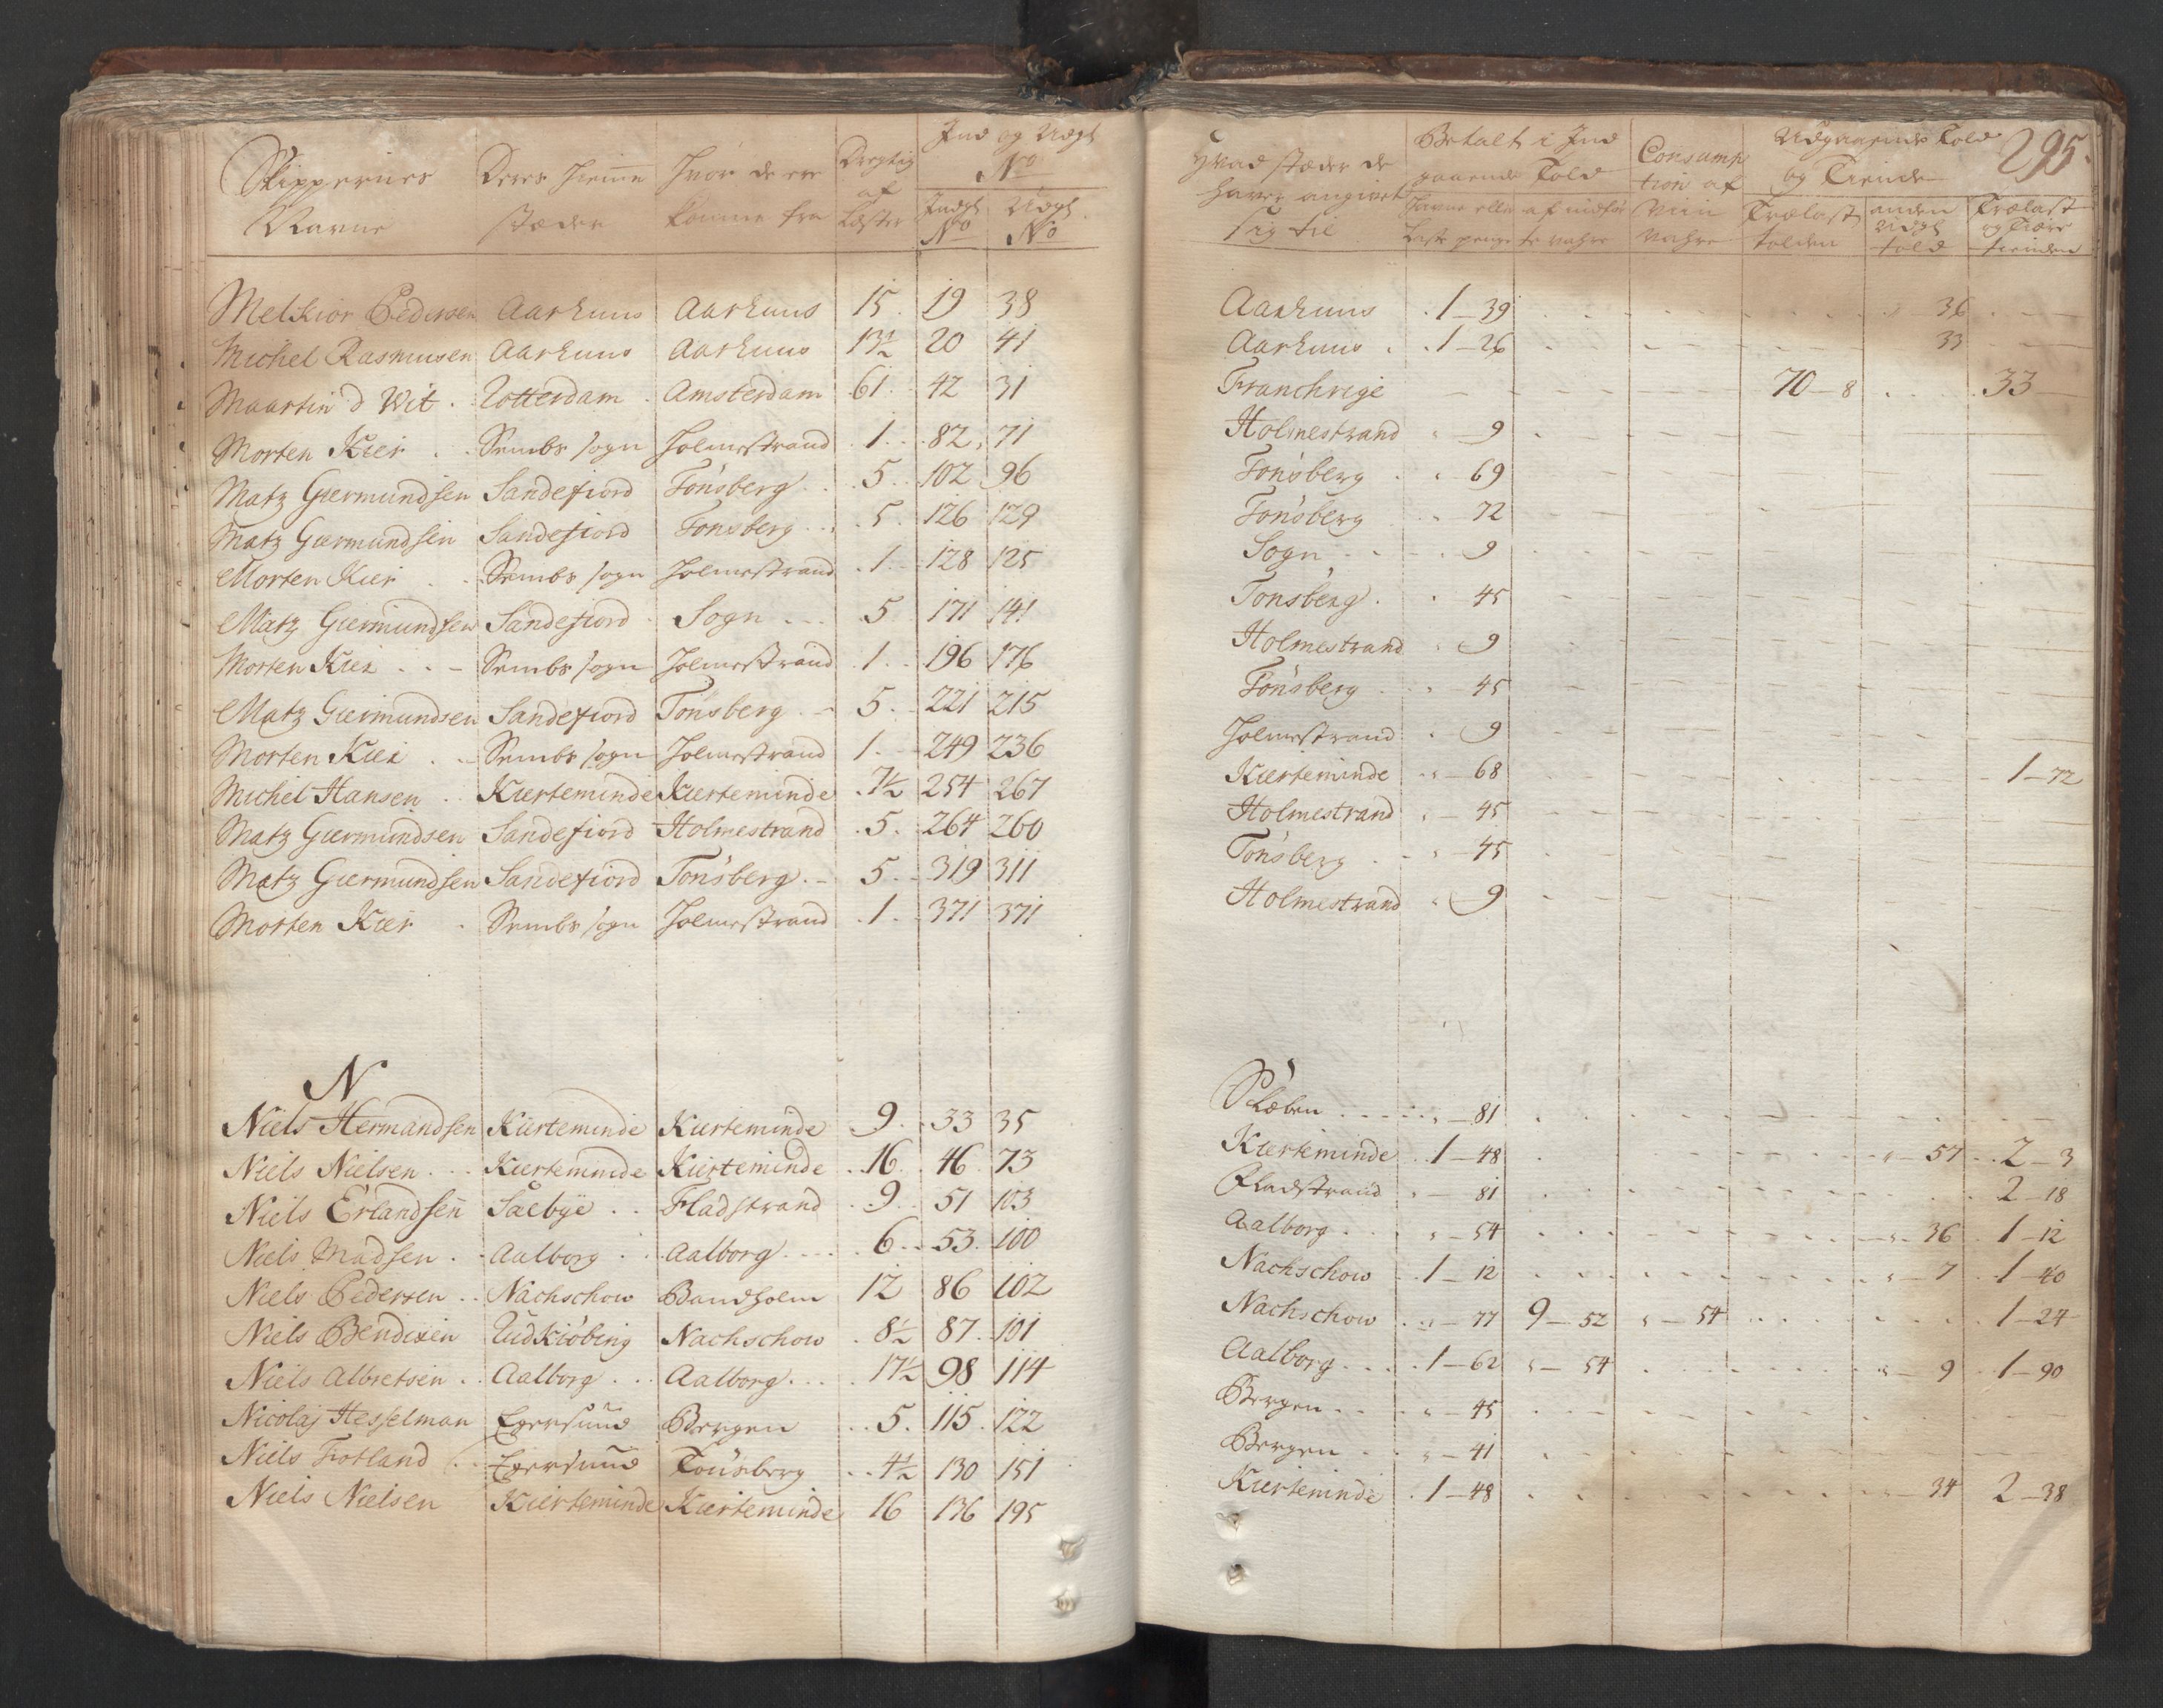 Skippernes Navne | Deres Hiemme stæder | Hvor de ere komme fra | Drægtig af Læster | Ind og Udgl No | Indgl No | Udgl No
Melkior Pedersen | Aarhuus | Aarhuus | 15 | 19 | 38
Michel Rasmusen | Aarhuus | Aarhuus | 13½ | 20 | 41
Maartin d Wit | Rotterdam | Amsterdam | 61 | 42 | 31
Morten Kier | Sembs sogn | Holmestrand | 1 | 82 | 71
Matz Giermundsen | Sandefiord | Tönsberg | 5 | 102 | 96
Matz Giermundsen | Sandefiord | Tonsberg | 5 | 126 | 129
Morten Kier | Sembs sogn | Holmestrand | 1 | 128 | 125
Matz Giermundsen | Sandefiord | Sogn | 5 | 171 | 141
Morten Kier | Sembs sogn | Holmestrand | 1 | 196 | 176
Matz Giermundsen | Sandefiord | Tönsberg | 5 | 221 | 215
Morten Kier | Sembs sogn | Holmestrand | 1 | 249 | 236
Michel Hansen | Kierteminde | Kierteminde | 7½ | 254 | 267
Matz Giermundsen | Sandefiord | Holmestrand | 5 | 264 | 260
Matz Giermundsen | Sandefiord | Tönsberg | 5 | 319 | 311
Morten Kier | Sembs sogn | Holmestrand | 1 | 371 | 371
N
Niels Hermandsen | Kierteminde | Kierteminde | 9 | 33 | 35
Niels Nielsen | Kierteminde | Kierteminde | 16 | 46 | 73
Niels Erlandsen | Saebÿe | Fladstrand | 9 | 51 | 103
Niels Madsen | Aalborg | Aalborg | 6 | 53 | 100
Niels Pedersen | Nachschow | Bandholm | 12 | 86 | 102
Niels Bendixen | Rudkiöbing | Nachschow | 8½ | 87 | 101
Niels Albretsen | Aalborg | Aalborg | 17½ | 98 | 114
Nicolaj Hesselman | Egersund | Bergen | 5 | 115 | 122
Niels Frotland | Egersund | Tönsberg | 4½ | 130 | 151
Niels Nielsen | Kierteminde | Kierteminde | 16 | 136 | 195
295
Hvad stæder de haver angivet sig til | Betalt i Ind gaaende Told | Havne eller Læste penge | af indførte vahre | Consumption af Viin Vahre | Udgaaende Told og Tiende | Trælast tolden | anden Udgl told | Trælast og Tiære tienden
Aarhuus | 1-39 | 36
Aarhuus | 1-26 | 33
Franchrige | 70-8 | 33
Holmestrand | 9
Tönsberg | 69
Tönsberg | 72
Sogn | 9
Tonsberg | 45
Holmestrand | 9
Tönsberg | 45
Holmestrand | 9
Kierteminde | 68 | 1-72
Holmestrand | 45
Tönsberg | 45
Holmestrand | 9
81
Kierteminde | 1-48 | 57 | 2-3
Fladstrand | 81 | 2-18
Aalborg | 54 | 36 | 1-12
Nachschow | 1-12 | 7 | 1-40
Nachschow | 77 | 9-52 | 54 | 1-24
Aalborg | 1-62 | 54 | 9 | 1-90
Bergen | 45
Bergen | 41
Kierteminde | 1-48 | 34 | 2-38